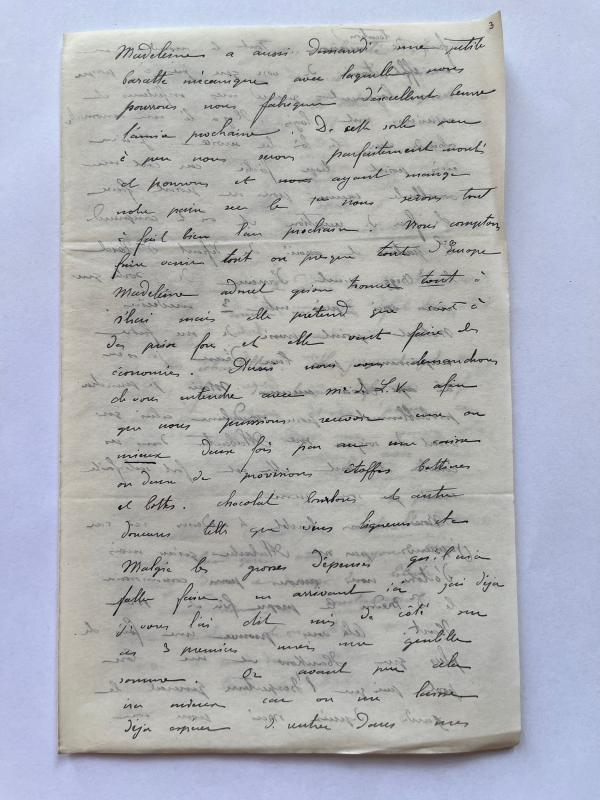 3
Madeleine a aussi demandé une petite
baratte mécanique avec laquelle nous
pourrons nous fabriquer d'excellent beurre
l'année prochaine. De cette sorte peu
à peu nous serons parfaitement montés
et pourvus et ayant mangé
notre pain sec le nous serons tout
à fait bien l'an prochain. Nous comptons
faire venir tout ou presque tout d'Europe
Madeleine admet qu'on trouve tout à
mais elle prétend que c'est à
des prix fous et elle veut faire des
économies. Aussi nous vous demanderons
de vous entendre avec Mr L. L. V. afin
que nous puissions recevoir une ou
mieux deux fois par an une caisse
ou deux de provisions étoffes bottines
et bottes. chocolat bonbons et autres
douceurs telles que vins liqueurs etc
Malgré les grosses dépenses qu'il m'a
fallu faire en arrivant ici j'ai déjà
je vous l'ai dit mis de côté sur
ces 3 premiers mois une gentille
somme. Or avant peu cela
ira mieux car on me laisse
déjà espérer d'entrer dans mes